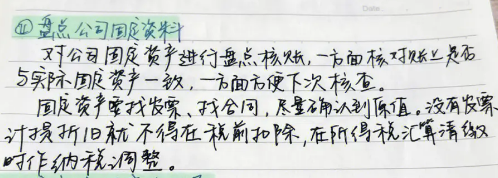 ⑪ 盘点公司固定资料
对公司固定资产进行盘点核账，一方面核对账上是否
与实际固定资产一致，一方面方便下次核查。
固定资产要找发票、找合同，尽量确认到原值。没有发票
计提折旧就不得在税前扣除，在所得税汇算清缴
时作纳税调整。